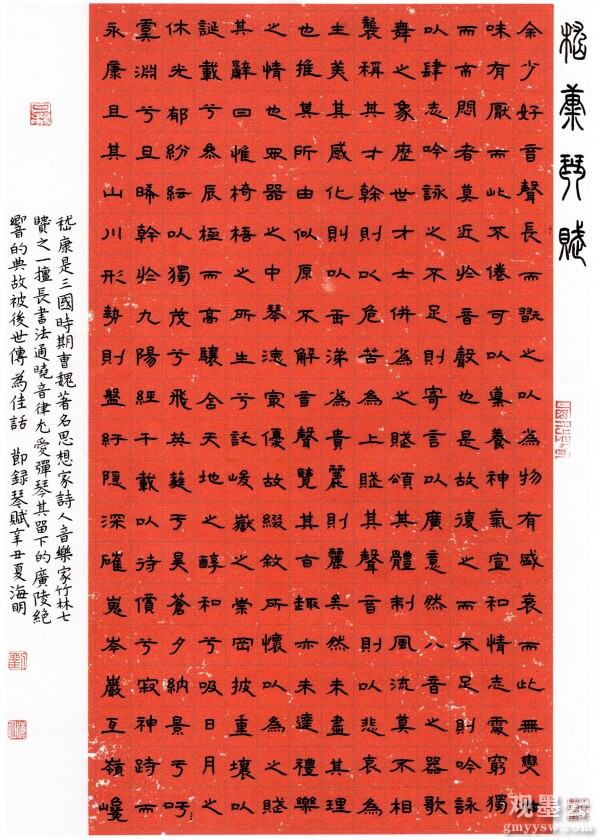 嵇康琴賦
余少好音聲長而翫之以為物有盛衰而此無變
味有厭而此不倦可以導養神氣宣和情志處窮獨
而不悶者莫近於音聲也是故復之而不足則吟詠
以肆志吟詠之不足則寄言以廣意然八音之器歌
舞之象歷世才士併為之賦頌其體制風流莫不相
襲稱其才幹則以危苦為上賦其聲音則以悲哀為
主美其感化則以垂涕為貴麗則麗矣然未盡其理
也推其所由似原不解音聲覽其旨趣亦未達禮樂
之情也眾器之中琴德最優故綴敘所懷以為之賦
其辭曰惟椅梧之所生兮託峻嶽之崇岡披重壤以
誕載兮參辰極而高驤含天地之醇和兮吸日月之
休光郁紛紜以獨茂兮飛英蕤于昊蒼夕納景于吁
虞淵兮旦晞幹於九陽經千載以待價兮寂神跱而
永康且其山川形勢則盤紆隱深磪嵬岑巖互嶺巉
嵇康是三國時期曹魏著名思想家詩人音樂家竹林七
賢之一擅長書法通曉音律尤愛彈琴其留下的廣陵絕
響的典故被後世傳為佳話 節録琴賦辛丑夏海明
观墨
gmyysw.com